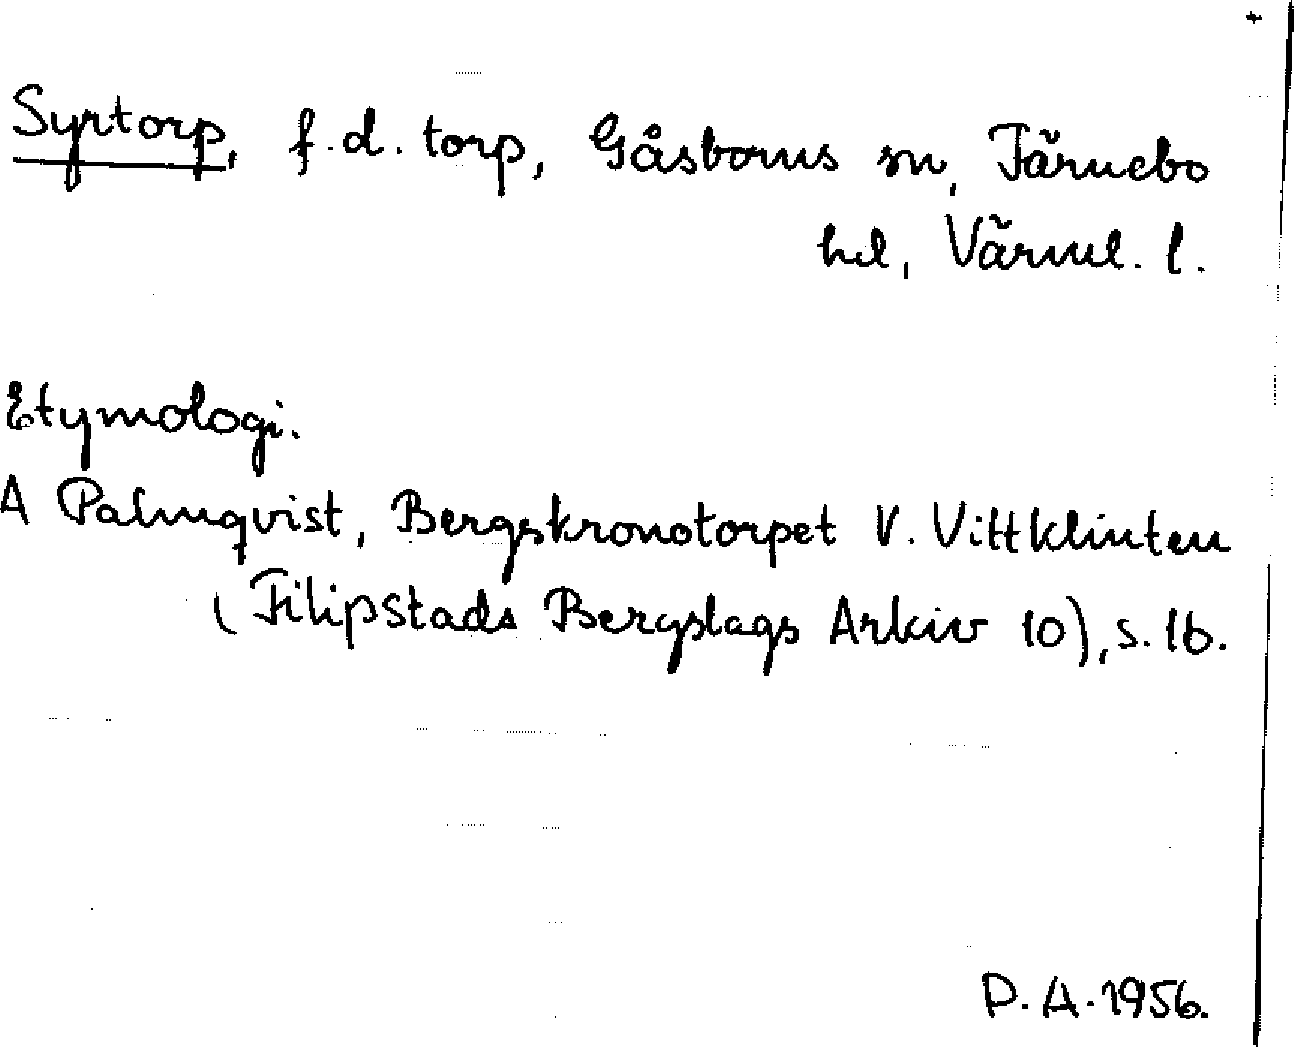 Syrtorp, f.d. torp, Gåsborns sn, Färnebo
hd, Värml. l.
Etymologi.
A Palmqvist, Bergskronotorpet V. Vittklinten
(Filipstads Bergslags Arkiv 10), s. 16.
D. A. 1956.